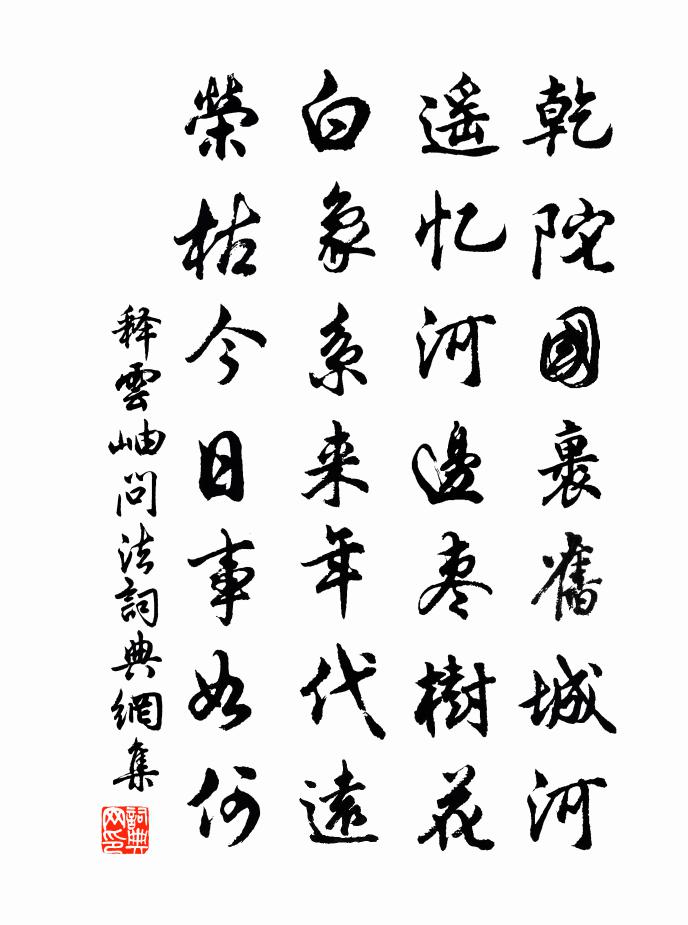 乾陀國裏舊城河
遥忆河邊枣樹花
白象系来年代遠
榮枯今日事如何
释雲岫問法詞典網集
詞典网印